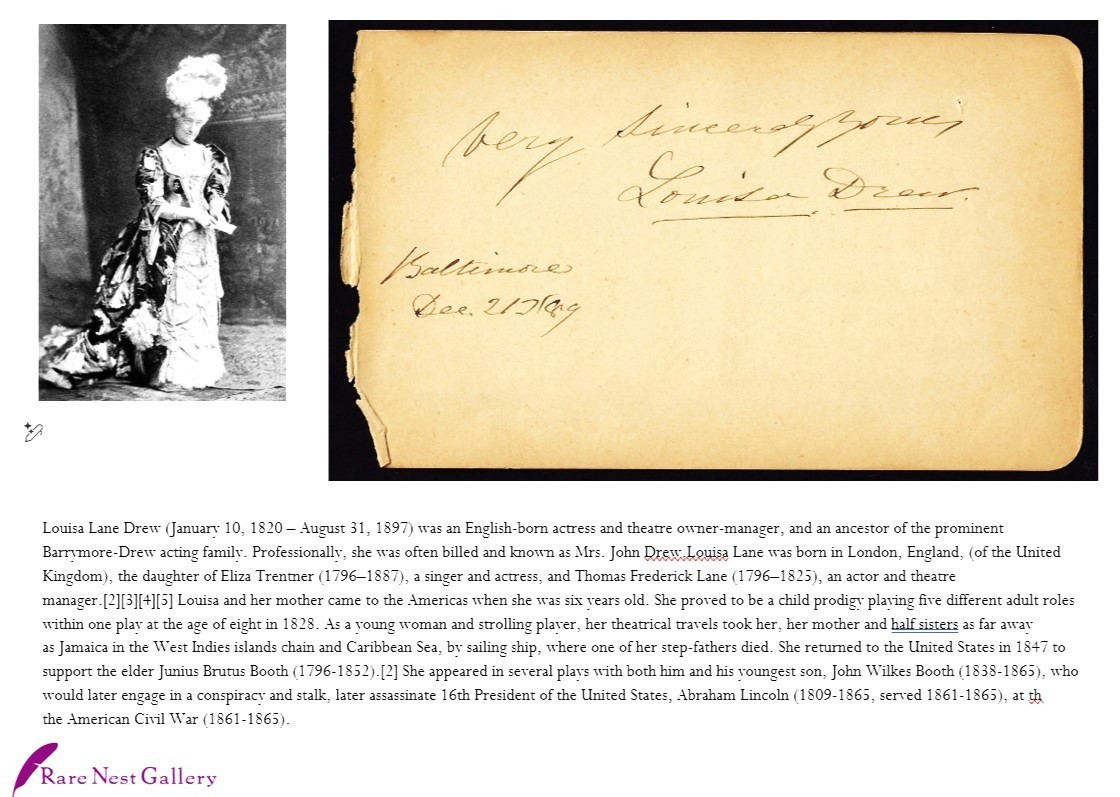 Very Sincerely Yours
Louisa Drew.
Baltimore
Dec. 21
Louisa Lane Drew (January 10, 1820 – August 31, 1897) was an English-born actress and theatre owner-manager, and an ancestor of the prominent
Barrymore-Drew acting family. Professionally, she was often billed and known as Mrs. John Drew.Louisa Lane was born in London, England, (of the United
Kingdom), the daughter of Eliza Trentner (1796–1887), a singer and actress, and Thomas Frederick Lane (1796–1825), an actor and theatre
manager.[2][3][4][5] Louisa and her mother came to the Americas when she was six years old. She proved to be a child prodigy playing five different adult roles
within one play at the age of eight in 1828. As a young woman and strolling player, her theatrical travels took her, her mother and half sisters as far away
as Jamaica in the West Indies islands chain and Caribbean Sea, by sailing ship, where one of her step-fathers died. She returned to the United States in 1847 to
support the elder Junius Brutus Booth (1796-1852).[2] She appeared in several plays with both him and his youngest son, John Wilkes Booth (1838-1865), who
would later engage in a conspiracy and stalk, later assassinate 16th President of the United States, Abraham Lincoln (1809-1865, served 1861-1865), at th
the American Civil War (1861-1865).
Rare Nest Gallery